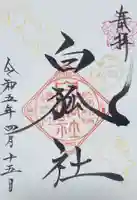 奉拝
白狐社
令和五年四月十五日